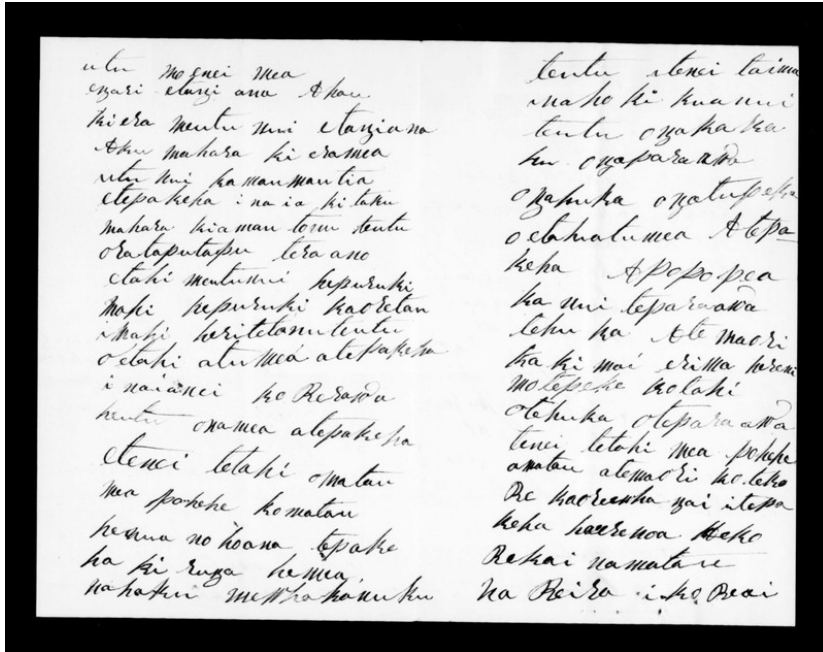 utu mo enei mea
engari etangi ana Ahau
kiera meutu nui etangiana
Aku mahara ki eramea
utu nui ka maumautia
etepakeha i naia ki taku
mahara kiamau tonu teutu
orataputapu tera ano
etahi meutunui hepuruki
mahi hepuruki kaoretau
i mahi heritetonuteutu
o etahi atu mea atepakeha
i naianei ko Rerawa
heutu onamea atepakeha
etenei tetahi omatau
mea pohehe komatau
hemua no hoana tepake
ha ki runga hemea
nahaku mewhakanuku
teutu itenei taima
inaho ki kua nui
teutu ongakaka
hu ongaparaawa
ongahuka ongatupeka
o etahiatumea Atepa-
keha Apopopea
ka nui teparaawa
tehu ka Ate maori
ka ki mai erima hereni
motepeke kotahi
otehuka oteparaawa
tenei tetahi mea pohehe
amatau atemaori ko.teko
Re kaoreewha ngai itepa
keha haerenoa Heko
Rekai namatau
na Reira i ko Reai